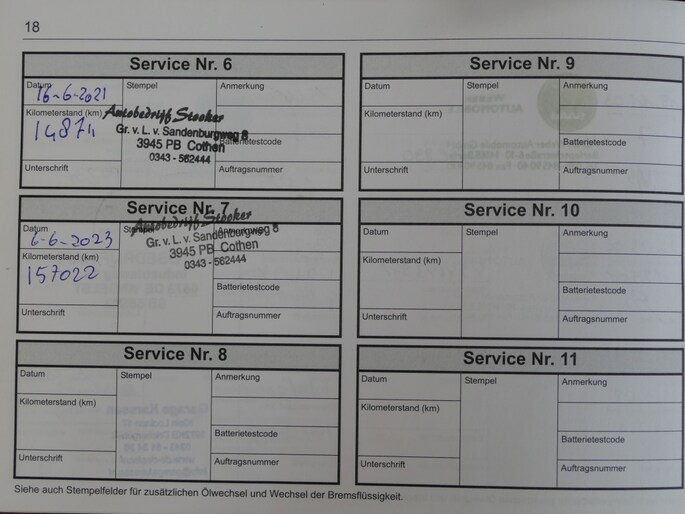 18
Service Nr. 6
Datum
16-6-2021
Stempel
Anmerkung
Kilometerstand (km)
Autobedrijf Stooker
Gr. v. L. v. Sandenburgweg 8
3945 PB Cothen
0343 - 562444
Batterietestcode
Unterschrift
Auftragsnummer
Service Nr. 7
Datum
6-6-2023
Stempel
Anmerkung
Kilometerstand (km)
157022
Autobedrijf Stooker
Gr. v. L. v. Sandenburgweg 8
3945 PB Cothen
0343 - 562444
Batterietestcode
Unterschrift
Auftragsnummer
Service Nr. 8
Datum
Stempel
Anmerkung
Kilometerstand (km)
Batterietestcode
Unterschrift
Auftragsnummer
Service Nr. 9
Datum
Stempel
Anmerkung
Kilometerstand (km)
Batterietestcode
Unterschrift
Auftragsnummer
Service Nr. 10
Datum
Stempel
Anmerkung
Kilometerstand (km)
Batterietestcode
Unterschrift
Auftragsnummer
Service Nr. 11
Datum
Stempel
Anmerkung
Kilometerstand (km)
Batterietestcode
Unterschrift
Auftragsnummer
Siehe auch Stempelfelder für zusätzlichen Ölwechsel und Wechsel der Bremsflüssigkeit.